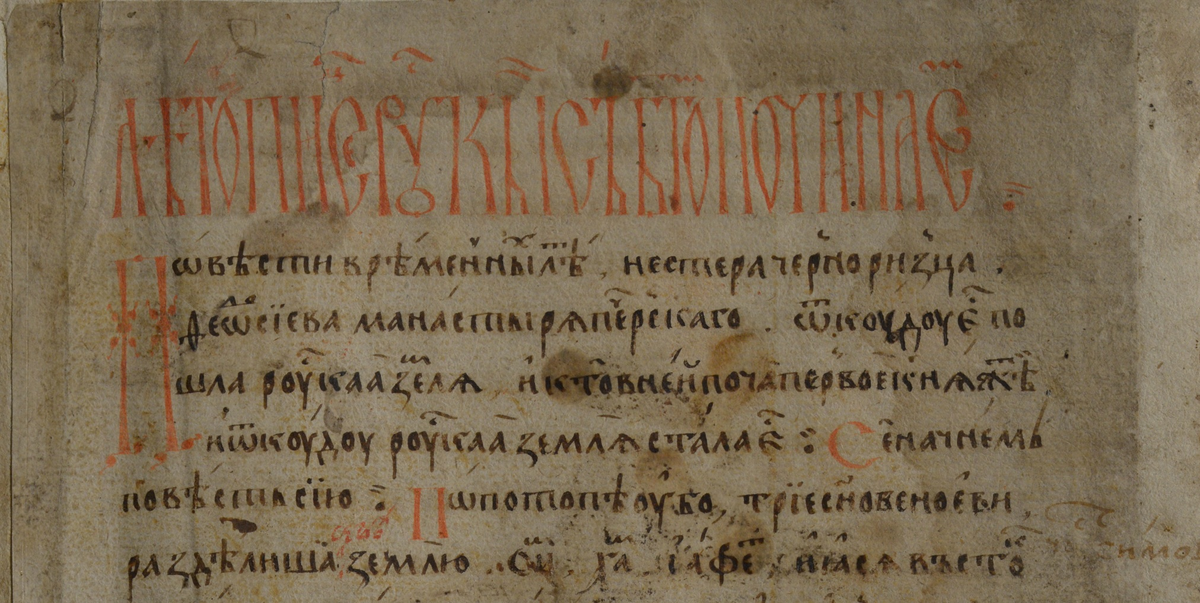 Лѣтописе рꙋскыи съ бгомъ починаемъ
Повѣсти врѣменныⷯ лѣⷮ. нестера черноризца.
Ѳеѡⷣсїева манастырѧ печерскаго. ѿкоудоу єⷭ по
шла роуⷭкааземлѧ и кто в неи поча первое кнѧжⷤѣ
и ѿкоудоу роуⷭкаа землѧ стала єⷭ: Се начнемь
повѣсть сїю: По потопѣ оубо, трїе сн҃ове ноеви,
раздѣлиша землю. Симъ. хамъ. їафеⷮ. и ꙗсѧ въстоⷦ